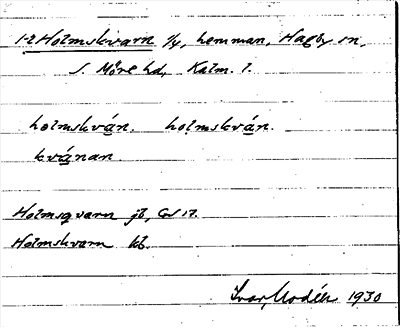 1-2 Holmskvarn 1/4, hemman, Hagby sn,
S. Möre hd, Kalm. l.
holmskván. holmskván.
kvánan.
Holmsqvarn jb,
Holmskvarn kb.
Ivar Modéer 1930